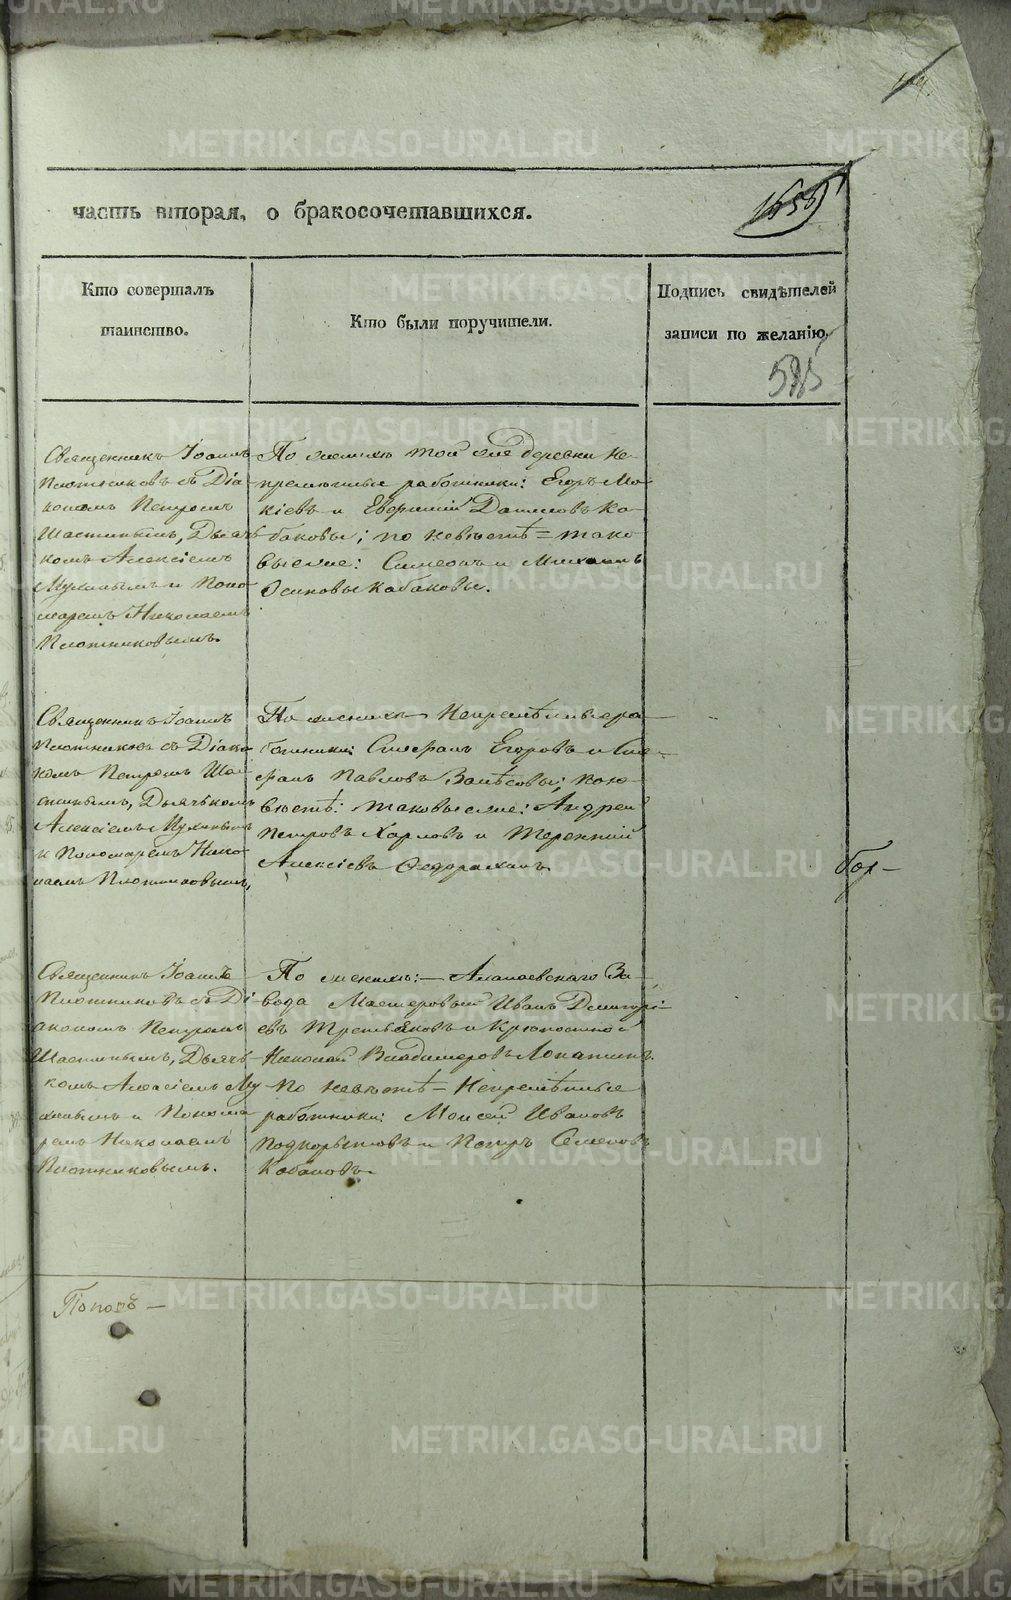 часть вторая, о бракосочетавшихся.
Кто совершалъ
таинство.
Кто были поручители.
Подпись свидѣтелей
записи по желанію.
Священникъ Іоаннъ
Плотниковъ съ Діа
кономъ Петромъ
Дьячь
комъ Алексіемъ
и Поно
маремъ Николаемъ
Плотниковымъ.
По женихѣ той же деревни Не
премѣнные работники: Егоръ Мо
кіевъ и Евгеній Даниловъ Ка
баковы; по невѣстѣ = тако
вые же: Симеонъ и Михаилъ
Осиповы Кабаковы.
Священникъ Іоаннъ
Плотниковъ съ Діако
номъ Петромъ
Дьячькомъ
Алексіемъ
и Пономаремъ Нико
лаемъ Плотниковымъ,
По женихѣ Непремѣнные ра
ботники: Стефанъ Егоровъ и Сте
фанъ Павловъ
вѣстѣ: таковые же: Андрей
Петровъ Харловъ и Терентій
Алексіевъ
Священникъ Іоаннъ
Плотниковъ съ Ді
акономъ Петромъ
Дьячь
комъ Алексіемъ Му
и Понома
ремъ Николаемъ
Плотниковымъ.
По женихѣ: — Алапаевскаго За
вода Мастеровый Иванъ Димитрі
евъ Третьяковъ и Крѣпостной
Николай Владимеровъ Лопатинъ
по невѣстѣ = Непремѣнные
работники: Моисей Ивановъ
Подкорытовъ и Петръ Семеновъ
Кабаковъ.
Поповъ —
METRIKI.GASO-URAL.RU